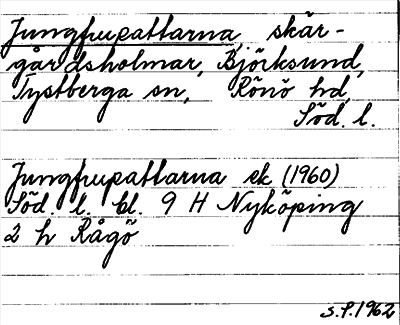 Jungfrupattarna, skär-
gårdsholmar, Björksund,
Tystberga sn, Rönö hd,
Söd. l.
Jungfrupattarna ek (1960)
Söd. l. bl. 9 H Nyköping
2 h Rågö
S.P. 1962